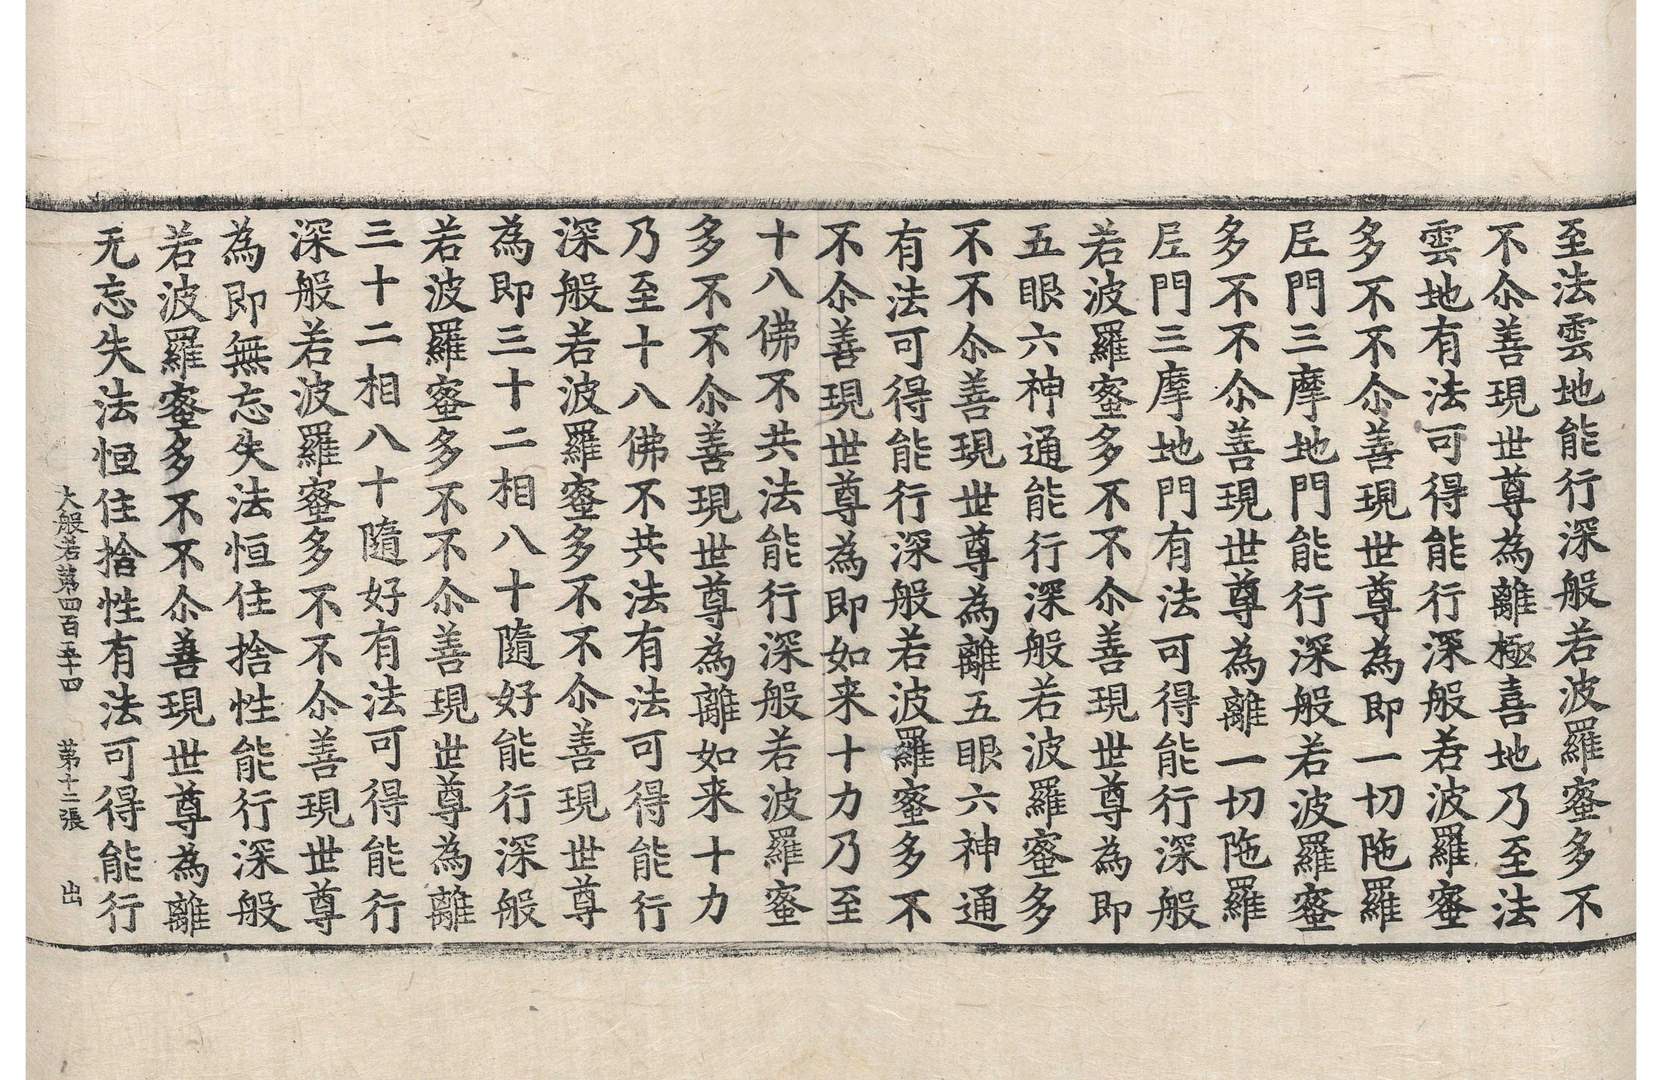 至法雲地能行深般若波羅蜜多不
不尒善現世尊為離極喜地乃至法
雲地有法可得能行深般若波羅蜜
多不不尒善現世尊為即一切陁羅
𡰱門三摩地門能行深般若波羅蜜
多不不尒善現世尊為離一切陁羅
𡰱門三摩地門有法可得能行深般
若波羅蜜多不不尒善現世尊為即
五眼六神通能行深般若波羅蜜多
不不尒善現世尊為離五眼六神通
有法可得能行深般若波羅蜜多不
不尒善現世尊為即如来十力乃至
十八佛不共法能行深般若波羅蜜
多不不尒善現世尊為離如来十力
乃至十八佛不共法有法可得能行
深般若波羅蜜多不不尒善現世尊
為即三十二相八十隨好能行深般
若波羅蜜多不不尒善現世尊為離
三十二相八十隨好有法可得能行
深般若波羅蜜多不不尒善現世尊
為即無忘失法恒住捨性能行深般
若波羅蜜多不不尒善現世尊為離
无忘失法恒住捨性有法可得能行
大般若第四百五十四 第十二張 出